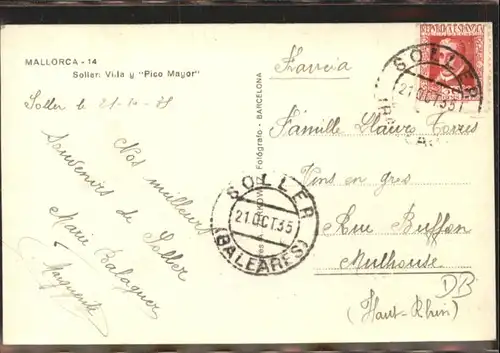 MALLORCA - 14
Soller: Villa y "Pico Mayor"
Soller le 21-10-35
Nos meilleurs
Souvenirs de Soller
Marie Balaguer
Marguerite
Fotógrafo - BARCELONA
SOLLER
21.OCT.35
(BALEARES)
SOLLER
21.OCT.35
Francia
Famille Llauro Torres
Vins en gros
Rue Buffon
Mulhouse
(Haut-Rhin)
DB